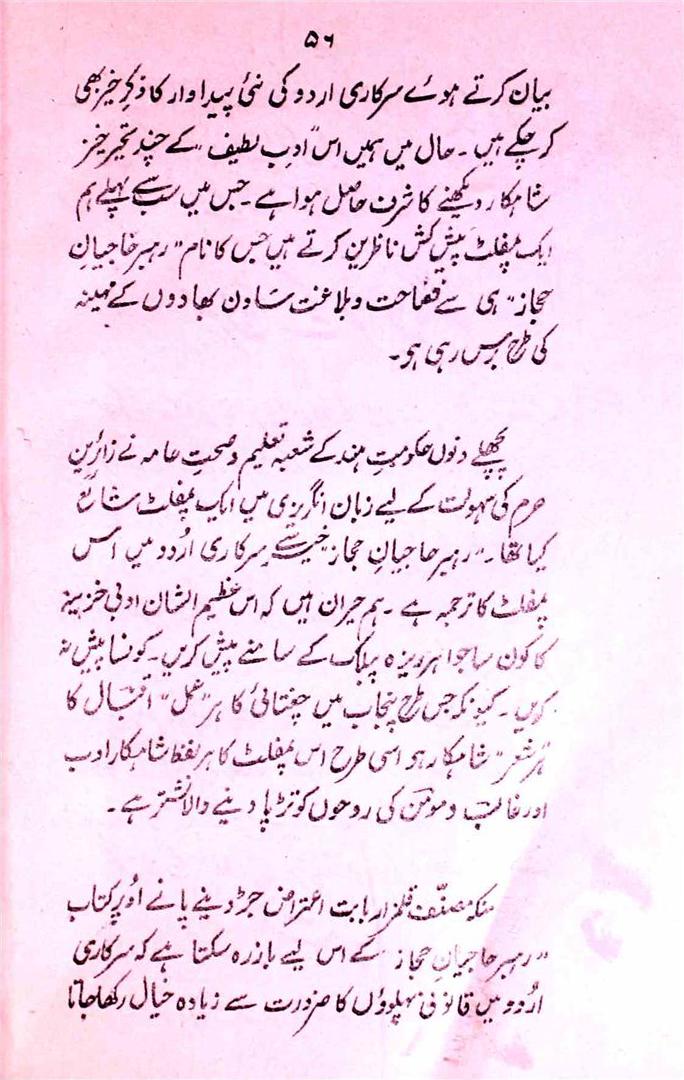 ۵۶
بیان کرتے ہوئے سرکاری اردو کی نئی پیداوار کا ذکرِ خیر بھی
کر چکے ہیں۔ حال میں ہمیں اس "ادبِ لطیف" کے چند تحیر خیز
شاہکار دیکھنے کا شرف حاصل ہوا ہے۔ جس میں سب سے پہلے ہم
ایک پمفلٹ پیش کش ناظرین کرتے ہیں جس کا نام "رہبرِ حاجیانِ
حجاز" ہی سے فصاحت و بلاغت ساون بھادوں کے مہینہ
کی طرح برس رہی ہو۔
پچھلے دنوں حکومتِ ہند کے شعبہ تعلیم و صحتِ عامہ نے زائرین
حرم کی سہولت کے لیے زبان انگریزی میں ایک پمفلٹ شائع
کیا تھا۔ "رہبر حاجیانِ حجاز" سرکاری اُردو میں اس
پمفلٹ کا ترجمہ ہے۔ ہم حیران ہیں کہ اس عظیم الشان ادبی خزینہ
کا کون سا جواہر ریزہ پبلک کے سامنے پیش کریں۔ کونسا پیش نہ
کریں۔ کیونکہ جس طرح پنجاب میں چغتائی کا ہر "عمل" اقبال کا
ہر شعر" شاہکار ہو اسی طرح اس پمفلٹ کا ہر لفظ شاہکار ادب
اور غالب و مومن کی روحوں کو تڑپا دینے والا نشتر ہے۔
منکہ مصنّف قلمزار بابت اعتراض جڑ دینے پانے اُوپر کتاب
"رہبر حاجیانِ حجاز کے اس لیے باز رہ سکتا ہے کہ سرکاری
اُردو میں قانونی پہلوؤں کا ضرورت سے زیادہ خیال رکھا جاتا